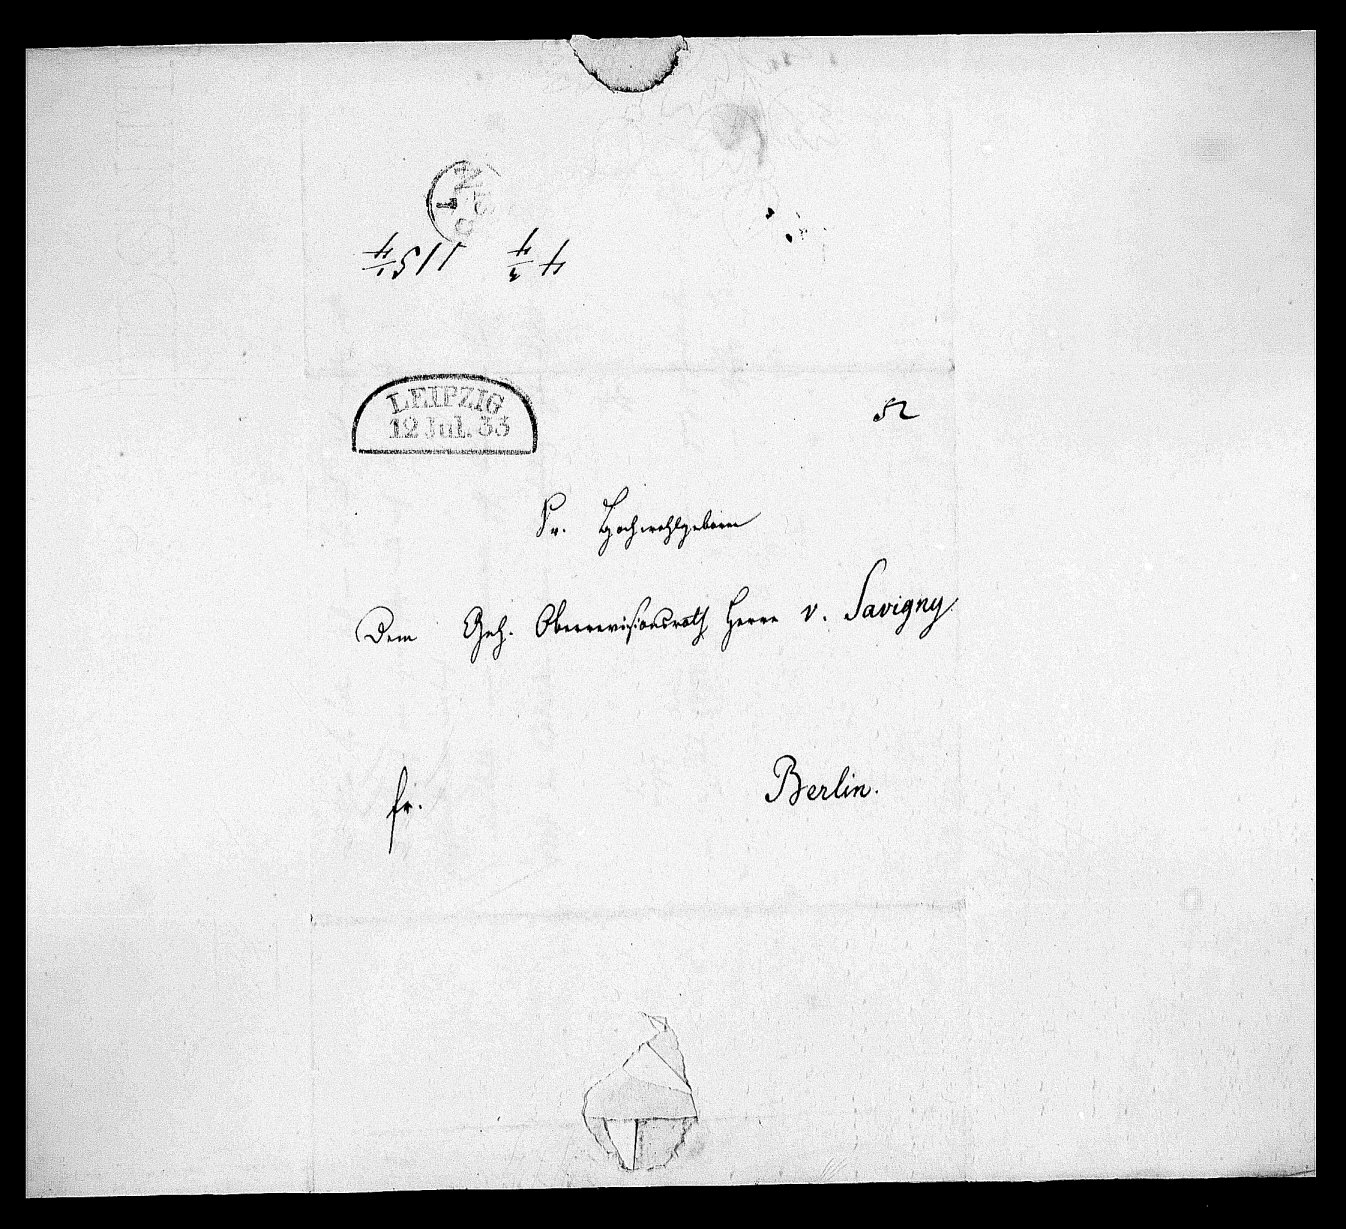 LEIPZIG
12 Jul. 33
Sr. Hochwohlgeboren
Dem Geh. Oberrevisionsrath Herrn v. Savigny
fr.
Berlin.